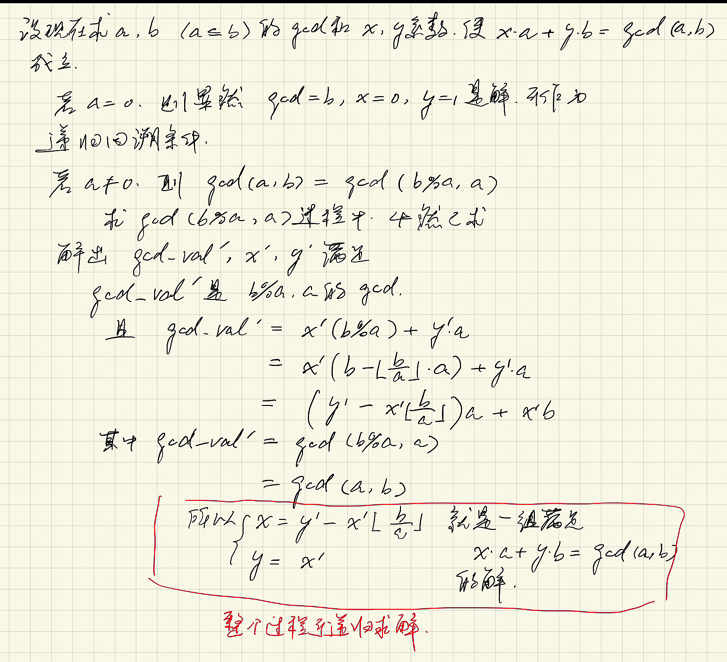 设现在求 a, b (a≤b) 的 gcd 和 x, y 系数. 使 x·a + y·b = gcd(a,b)
成立.
若 a=0. 则显然 gcd=b, x=0, y=1 是解. 可作为
递归回溯条件.
若 a≠0. 则 gcd(a,b) = gcd(b%a, a)
求 gcd(b%a, a)过程中. 必然已求
解出 gcd_val', x', y' 满足
gcd_val' 是 b%a, a 的 gcd.
且 gcd_val' = x'(b%a) + y'·a
= x'(b-⌊b/a⌋·a) + y'·a
= (y' - x'⌊b/a⌋)a + x'b
其中 gcd_val' = gcd(b%a, a)
= gcd(a,b)
所以 { x = y' - x'⌊b/a⌋ 就是一组满足
y = x' x·a + y·b = gcd(a,b)
的解.
整个过程可递归求解.